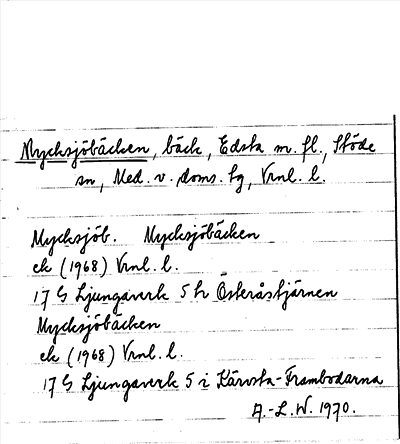 Mycksjöbäcken, bäck, Edsta m. fl., Stöde
sn, Med. v. doms. tg, Vrnl. l.
Mycksjöb. Mycksjöbäcken
ek (1968) Vrnl. l.
17 G Ljungaverk 5 h Österåstjärnen
Mycksjöbäcken
ek (1968) Vrnl. l.
17 G Ljungaverk 5 i Kärvsta-Frambodarna
A.-L. W. 1970.